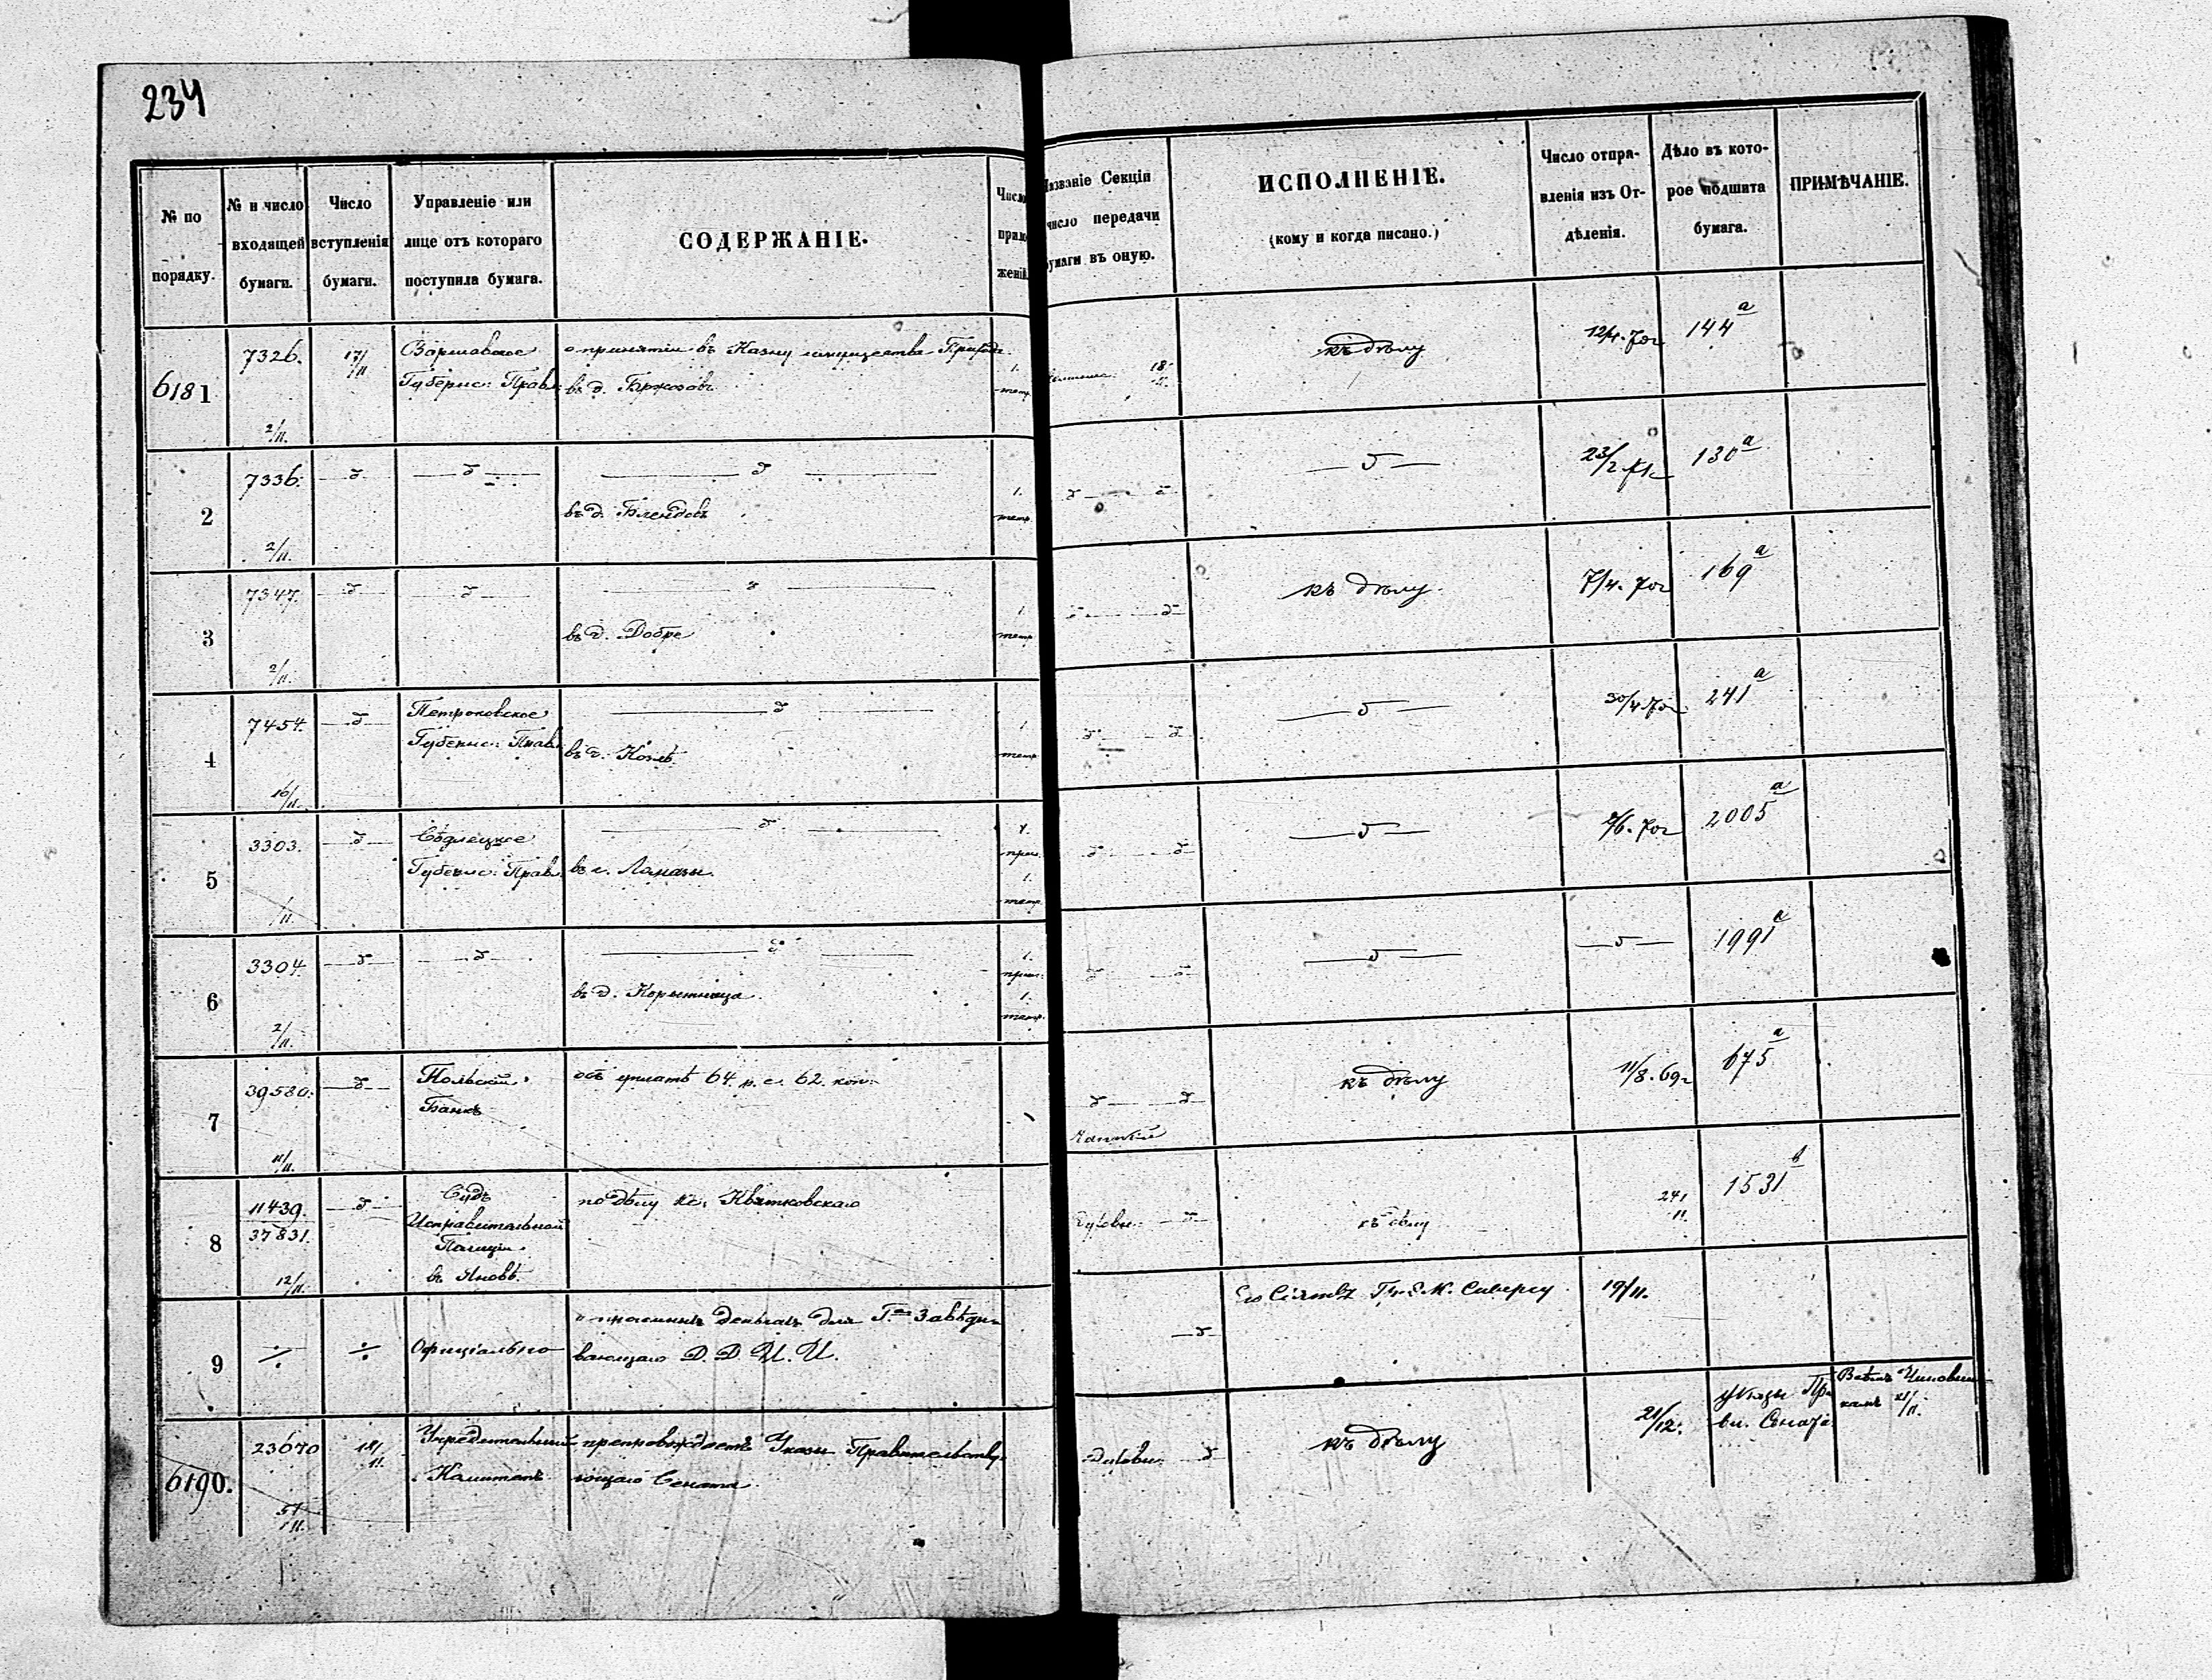 234
№ по порядку.
№ и число входящей бумаги.
Число вступленія бумаги.
Управленіе или лице отъ котораго поступила бумага.
СОДЕРЖАНІЕ.
Число прило-
женій
Названіе Секціи
число передачи
бумаги въ оную.
ИСПОЛНЕНІЕ.
(кому и когда писано.)
Число отпра-
вленія изъ От-
дѣленія.
Дѣло въ кото-
рое подшита
бумага.
ПРИМѢЧАНІЕ.
6181
7326.
2/11.
17/11
Варшавское
Губернс: Правл:
о принятіи въ Казну имущества Прихода
въ д. Бржозовъ
1.
тетр.
18
къ дѣлу
12/4. 70г
144 а
2
7336.
2/11.
д
д
д
въ д. Блендовъ
1.
тетр.
д д
д
23/2. 71г
130 а
3
7347.
2/11.
д
д
д
въ д. Добре
1.
тетр.
д д
къ дѣлу.
7/4. 70г
169 а
4
7454.
16/11.
д
Петроковское
Губернс: Правл:
д
въ г. Козлѣ
1
тетр.
д д
д
30/4 70г
241 а
5
3303.
/11.
д
Сѣдлецкое
Губернс: Правл.
д
въ с. Ломазы.
1.
прил.
1.
тетр.
д д
д
7/6. 70г
2005 а
6
3304.
2/11.
д
д
д
въ д. Корытница.
1.
прил.
1.
тетр.
д д
д
д
1991 а
7
39580.
11/11.
д
Польскій
Банкъ
объ уплатѣ 64. р. с. 62. коп.
д д
къ дѣлу
11/8. 69г
675 а
8
11439.
37831.
12/11.
д
Судъ
Исправительной
Полиціи
въ Яновѣ.
по дѣлу кс. Квятковскаго
Духовн. д
къ дѣлу
24/11.
1531 в
9
Офиціально
о прогонныхъ деньгахъ для Г. Завѣды-
вающаго Д. Д. И. И.
д
Его Сіятву Гр. Е. К. Сиверсу
19/11.
6190.
23670
5/11.
18/11.
Учредительный
Комитетъ
препровождаетъ Указы Правительству-
ющаго Сената.
Духовн. д
къ дѣлу
21/12.
Указы Пра
ви. Сената
Всѣмъ Чиновни-
камъ 21/11.